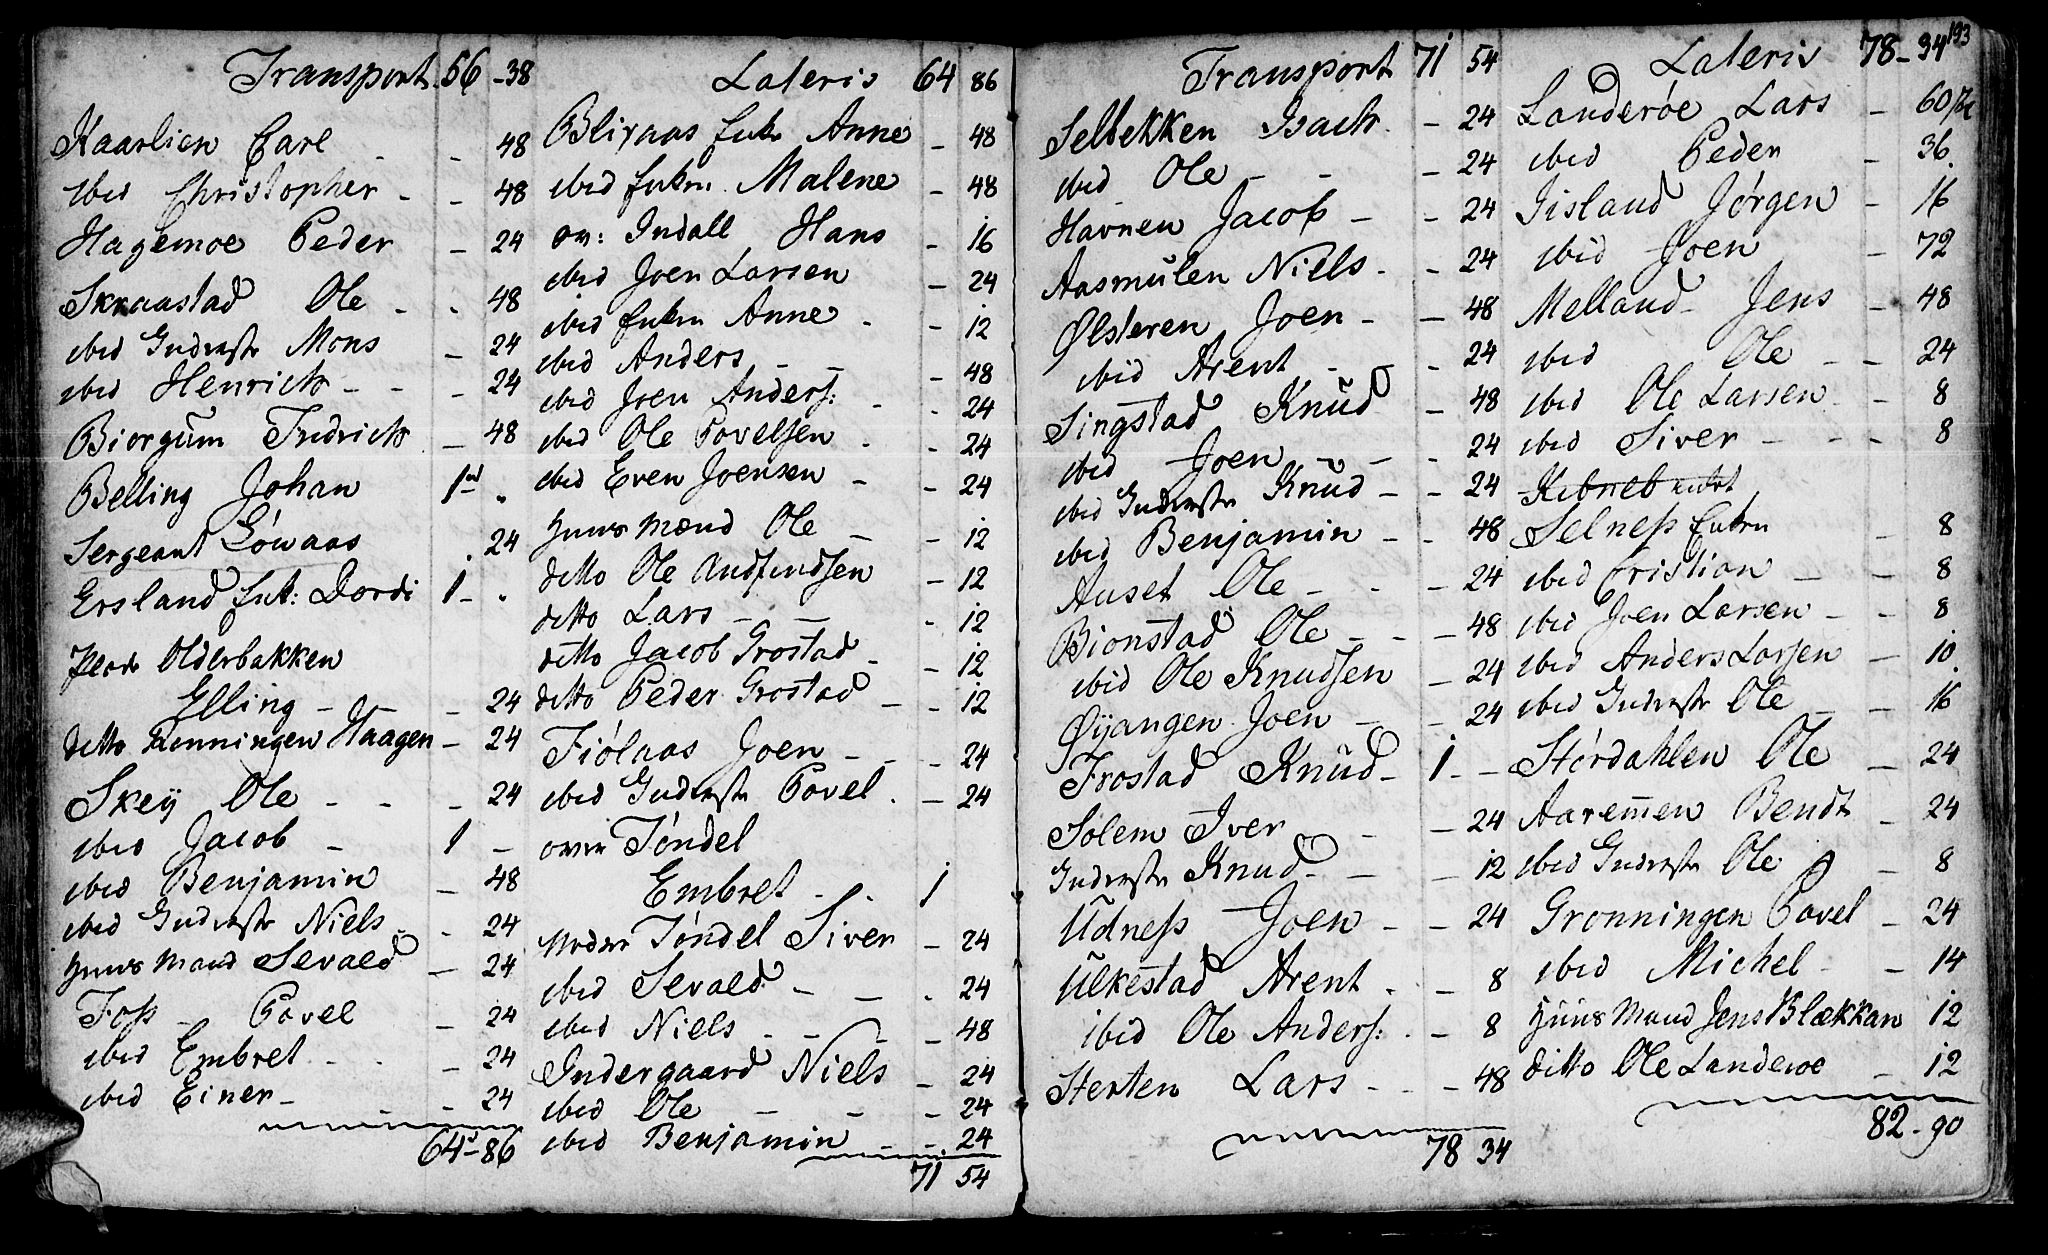 Transport 56 - 38
Kaarlien Carl - - 48
ibid Christopher - - 48
Hagemoe Peder - 24
Skraastad Ole - - 48
ibid Inderste Mons - 24
ibid Henrich - - - 24
Biorgum Fridrich - 48
Belling Johan 1 - "
Sergeant Löwaas . 24
Ersland Enk: Dordi 1 - .
Olderbakken
Elling - - - 24
ditto Rønningen Haagen - 24
Skeÿ Ole - - - 24
ibid Jacob - 1 -
ibid Benjamin - 48
ibid Inderste Niels - - 24
Huus Mand Sevald - 24
Foss - Povel - 24
ibid Embret - - - 24
ibid Einer - - - 24
64 - 86
Lateris 64 86
Blixaas Enke Anne - 48
ibid Enken Malene - 48
ov: Indall Hans - 16
ibid Joen Larsen - 24
ibid Enken Anne - - 12
ibid Anders - - - 48
ibid Joen Anders: - - 24
ibid Ole Povelsen - - 24
ibid Even Joensen - - 24
Huus Mænd Ole - - 12
ditto Ole Audfindsen - 12
ditto Lars - - - 12
ditto Jacob Grostad - - 12
ditto Peder Grostad - - 12
Fiólaas Joen - - - 24
ibid Inderste Povel . - 24
over Tóndel
Embret - - 1
Neder Tóndel Siver - 24
ibid Sevald - - - 24
ibid Niels - - - 48
Indergaard Niels - 24
ibid Ole - - - 24
ibid Benjamin - - 24
71 54
193
Transport 71 54
Selbekken Isach - - 24
ibid Ole - - - 24
Havnen Jacob - - 24
Aasmulen Niels - - 24
Ølsteren Joen - - 48
ibid Arent - - - 24
Singstad Knud - 48
ibid Joen - - - 24
ibid Inderste Knud - - 24
ibid Benjamin - - 48
Auset Ole - - - 24
Bionstad Ole - - - 48
ibid Ole Knudsen - 24
Øÿangen Joen - - 24
Frostad Knud - 1 - -
Solem Iver - - - 24
Inderste Knud - - - 12
Udness Joen - - 24
Ulkestad Arent . - 8
ibid Ole Anders: . - 8
Sterten Lars - - - 48
78 34
Lateris 78 - 34
Landeróe Lars - 60
ibid Peder - 36
Iisland Jórgen - 16
ibid Joen - 72
Melland Jens - 48
ibid Ole - - 24
ibid Ole Larsen - - 8
ibid Siver - - - 8
Selness Enken - 8
ibid Cristian - - 8
ibid Joen Larsen - - 8
ibid Anders Larsen - 10
ibid Inderste Ole - - 16
Stórdahlen Ole - 24
Aaremmen Bendt - 24
ibid Inderste Ole - 8
Gronningen Povel - 24
ibid Michel - - 14
Huus Mand Jens Blækkan 12
ditto Ole Landeroe - 12
82 - 90